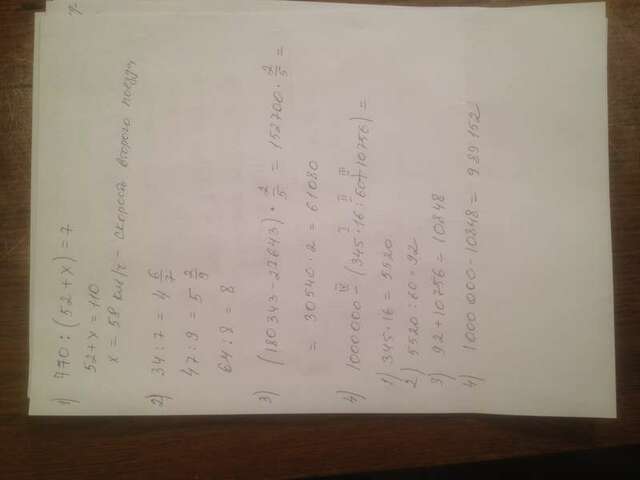 1) 770 : (52 + x) = 7
52 + x = 110
x = 58 км/ч - скорость второго поезда
2) 34 : 7 = 4 6/7
47 : 9 = 5 2/9
64 : 8 = 8
3) (180 343 - 27643) · 2/5 = 152700 · 2/5 =
= 30540 · 2 = 61080
IV I II III
4) 1000 000 - (345 · 16 : 60 + 10756) =
1) 345 · 16 = 5520
2) 5520 : 60 = 92
3) 92 + 10756 = 10848
4) 1000 000 - 10848 = 989 152